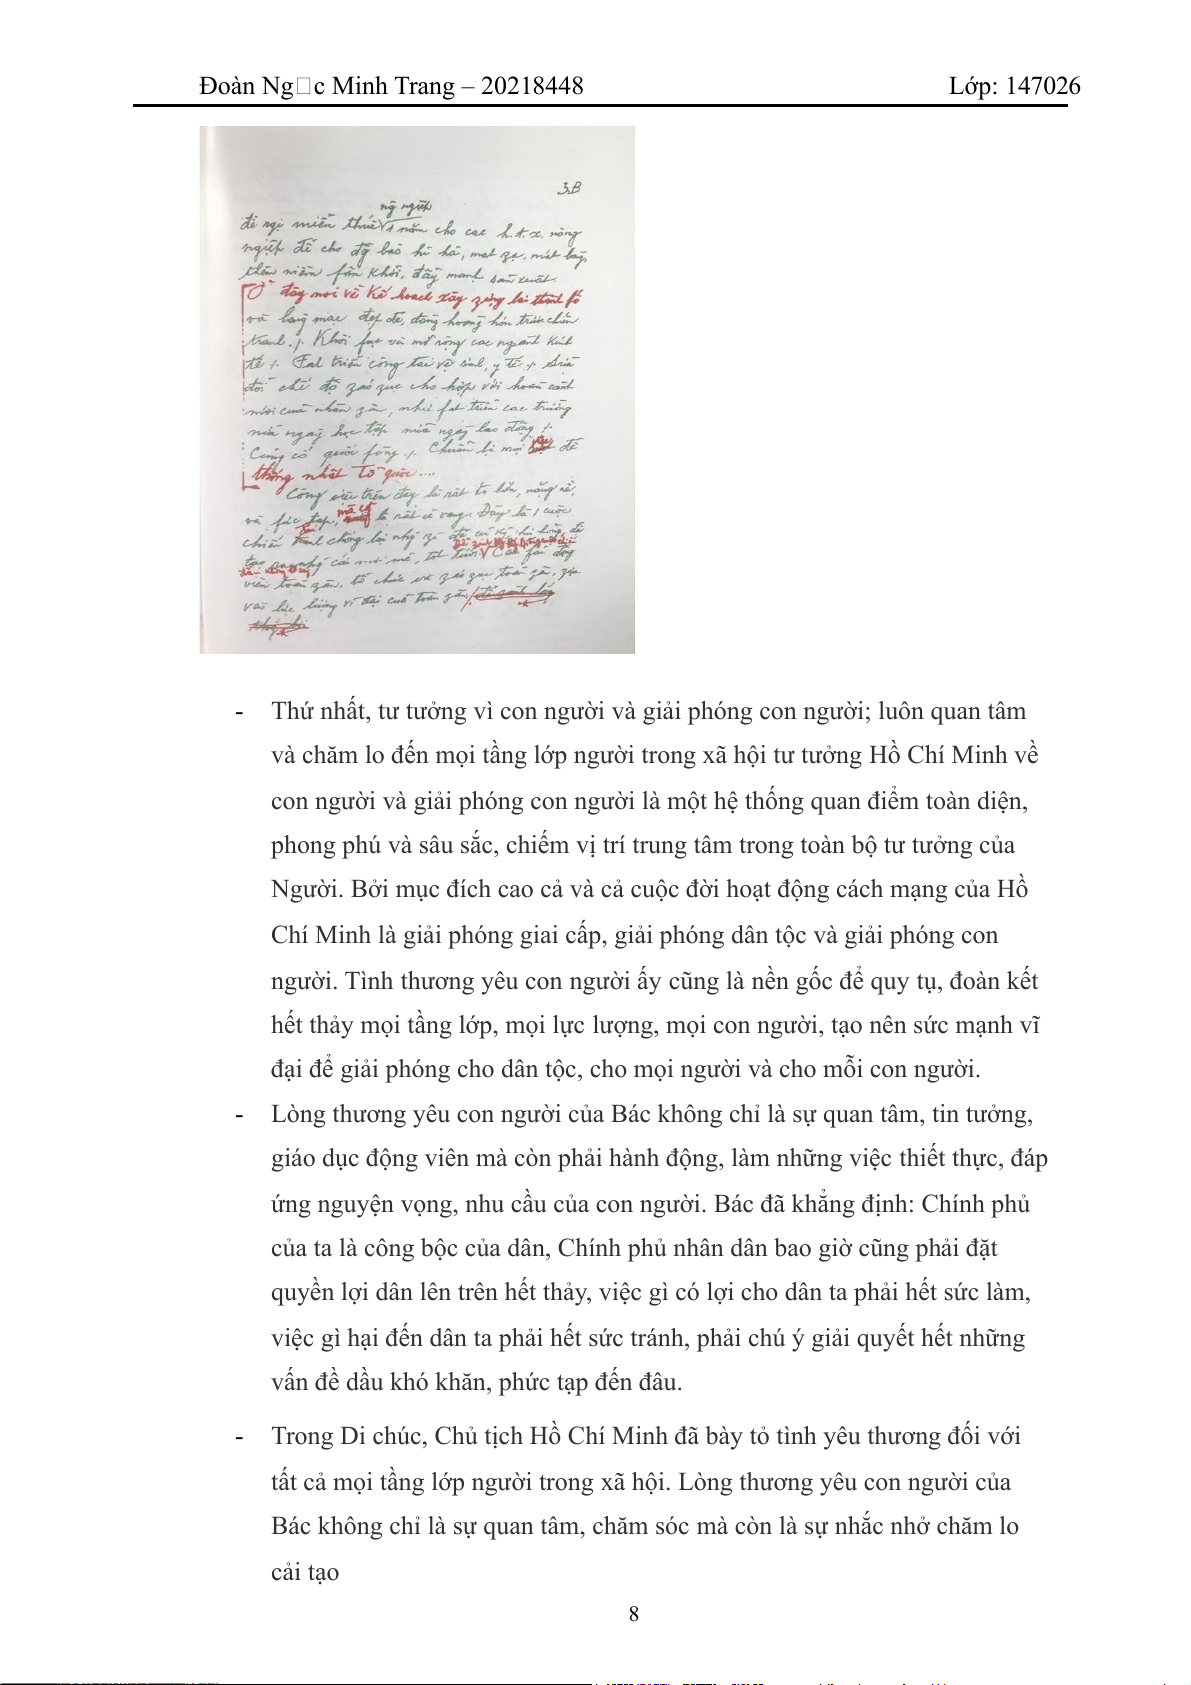 Đoàn Ng□c Minh Trang – 20218448 Lớp: 147026
3B
ng ngiệp
đề ngị miễn thuế 1 năm cho các h.t.x. nông
ngiệp để cho đg bào hỉ hả, mát zạ, mát
thêm niềm fấn khởi, đẩy mạnh sản xuất.
Ở đây nói về kế hoạch xây zựng lại thành fố
và làng mạc đẹp đẽ, đàng hoàng hơn trước chiến
tranh. Khôi fục và mở rộng các ngành kinh
tế. Fát triển công tác vệ sinh, y tế. Sửa
đổi chế độ záo zục cho hợp với hoàn cảnh
mới của nhân zân, như fát triển các trường
nửa ngày học tập nửa ngày lao động.
Củng cố quốc fòng. Chuẩn bị mọi việc để
thống nhất Tổ quốc....
Công việc trên đây là rất to lớn, nặng nề,
và fức tạp, mà cũng là rất vẻ vang. Đây là 1 cuộc
chiến chống lại
mới mẻ, tốt tươi.
động
viên toàn zân, tổ chức và záo zục toàn zân, zựa
vào lực lượng vĩ đại của toàn zân.
- Thứ nhất, tư tưởng vì con người và giải phóng con người; luôn quan tâm
và chăm lo đến mọi tầng lớp người trong xã hội tư tưởng Hồ Chí Minh về
con người và giải phóng con người là một hệ thống quan điểm toàn diện,
phong phú và sâu sắc, chiếm vị trí trung tâm trong toàn bộ tư tưởng của
Người. Bởi mục đích cao cả và cả cuộc đời hoạt động cách mạng của Hồ
Chí Minh là giải phóng giai cấp, giải phóng dân tộc và giải phóng con
người. Tình thương yêu con người ấy cũng là nền gốc để quy tụ, đoàn kết
hết thảy mọi tầng lớp, mọi lực lượng, mọi con người, tạo nên sức mạnh vĩ
đại để giải phóng cho dân tộc, cho mọi người và cho mỗi con người.
- Lòng thương yêu con người của Bác không chỉ là sự quan tâm, tin tưởng,
giáo dục động viên mà còn phải hành động, làm những việc thiết thực, đáp
ứng nguyện vọng, nhu cầu của con người. Bác đã khẳng định: Chính phủ
của ta là công bộc của dân, Chính phủ nhân dân bao giờ cũng phải đặt
quyền lợi dân lên trên hết thảy, việc gì có lợi cho dân ta phải hết sức làm,
việc gì hại đến dân ta phải hết sức tránh, phải chú ý giải quyết hết những
vấn đề dầu khó khăn, phức tạp đến đâu.
- Trong Di chúc, Chủ tịch Hồ Chí Minh đã bày tỏ tình yêu thương đối với
tất cả mọi tầng lớp người trong xã hội. Lòng thương yêu con người của
Bác không chỉ là sự quan tâm, chăm sóc mà còn là sự nhắc nhở chăm lo
cải tạo
8